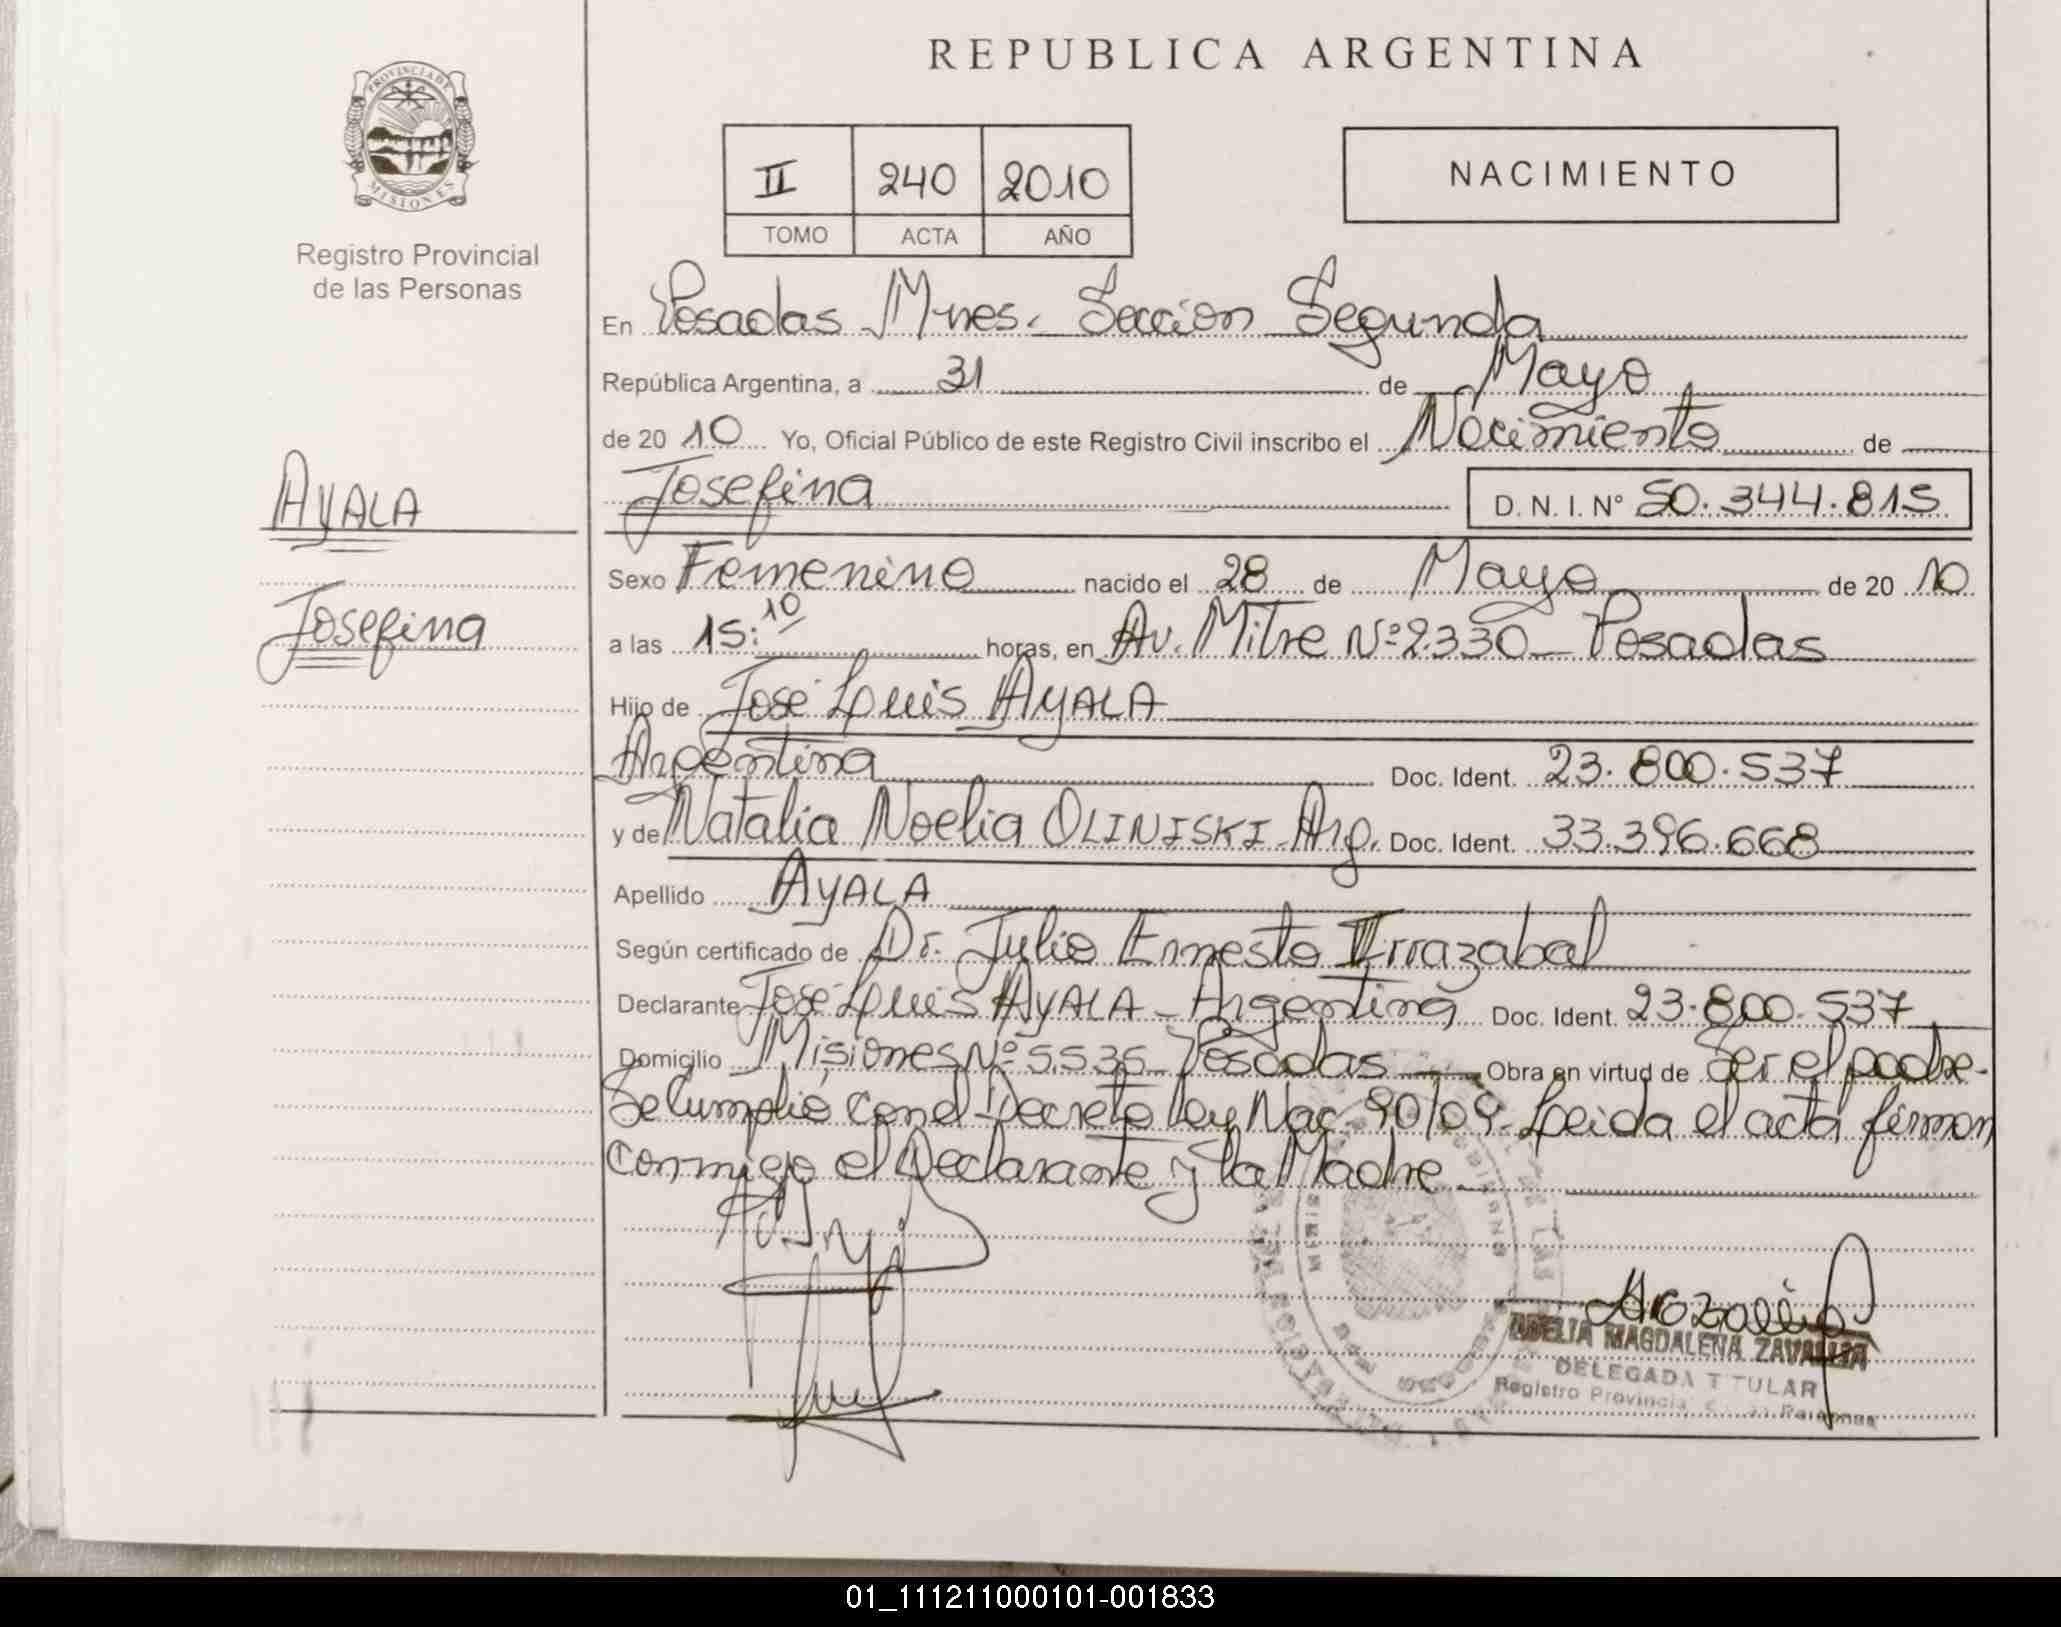 REPUBLICA ARGENTINA
PROVINCIA DE
MISIONES
Registro Provincial
de las Personas
II 240 2010
TOMO ACTA AÑO
NACIMIENTO
En Posadas Mnes. Sección Segunda
República Argentina, a 31 de Mayo
de 2010 Yo, Oficial Público de este Registro Civil inscribo el Nacimiento de
AYALA
Josefina D. N. I. Nº 50.344.815
Josefina
Sexo Femenino nacido el 28 de Mayo de 2010
a las 15:10 horas, en Av. Mitre Nº 2.330 - Posadas
Hijo de José Luis AYALA
Argentina Doc. Ident. 23.800.537
y de Natalia Noelia OLINISKI - Arg. Doc. Ident. 33.396.668
Apellido AYALA
Según certificado de Dr. Julio Ernesto Irrazabal
Declarante José Luis AYALA - Argentina Doc. Ident. 23.800.537
Domicilio Misiones Nº 5.535 - Posadas Obra en virtud de Ser el padre-
Se Cumplió con el Decreto Ley Nac. 90/09. Leida el acta firman
conmigo el Declarante y la Madre
MAGDALENA ZAVALLIA
DELEGADA TITULAR
Registro Provincial de las Personas
01_111211000101-001833